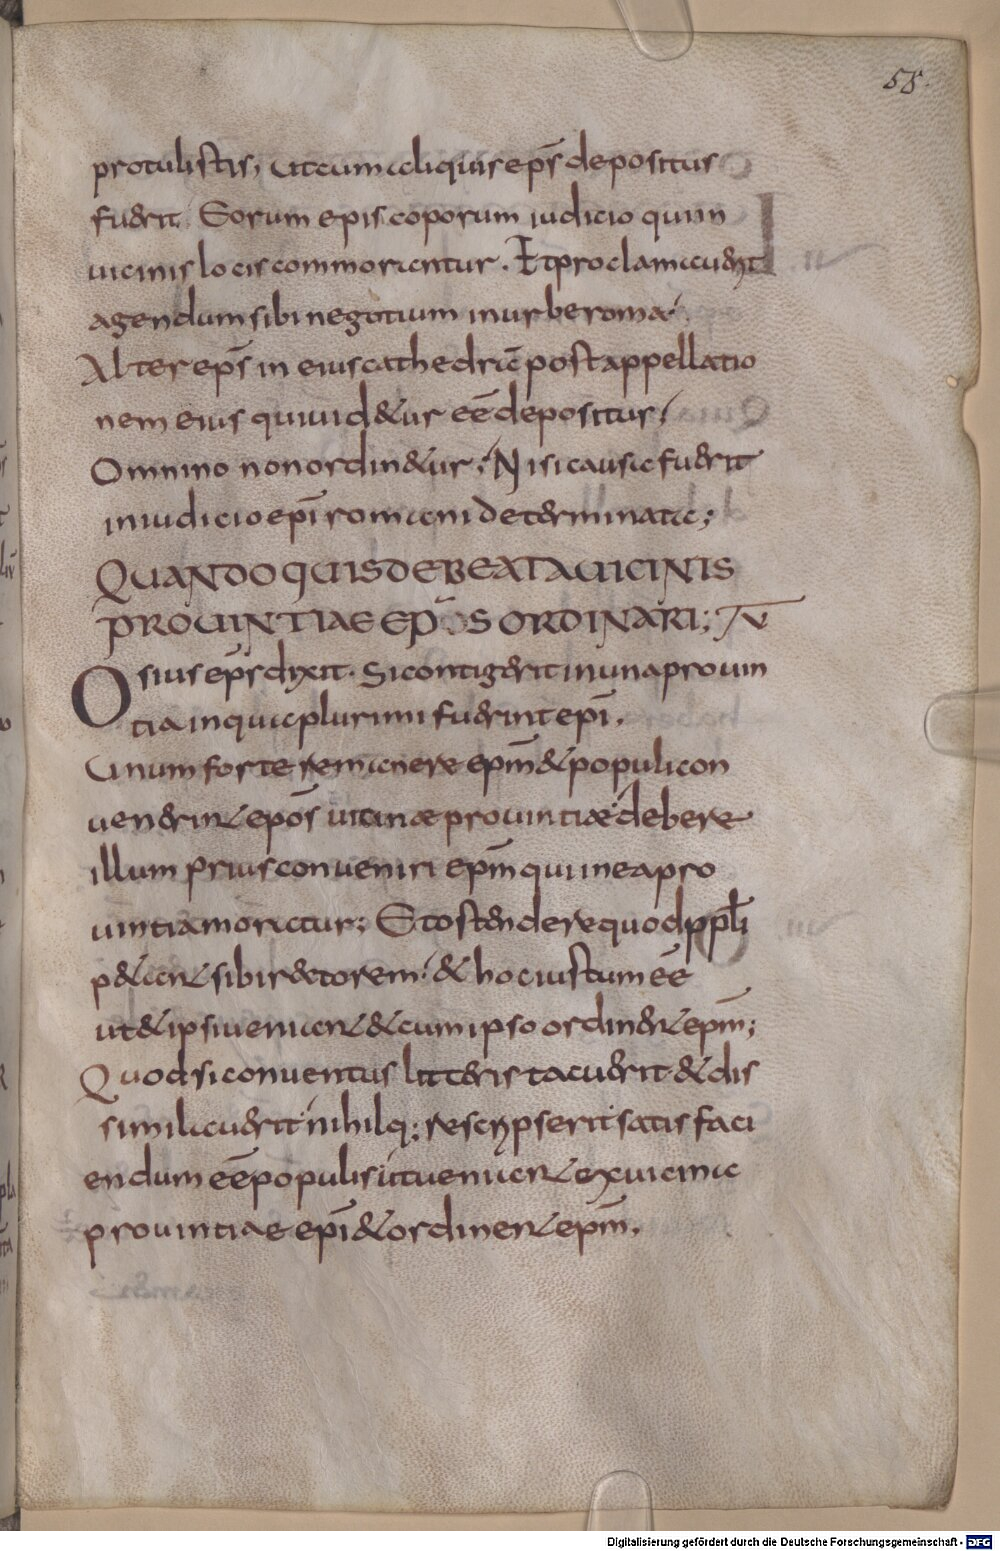 58.
protulistis, ut cum aliquis ep̄s depositus
fuerit. Eorum episcoporum iudicio qui in
uicinis locis commorantur. Et proclamauerit
agendum sibi negotium in urbe roma;
Alter ep̄s in eius cathedra post appellatio
nem eius qui uid&ur eē depositus;
Omnino non ordin&ur; Nisi causa fuerit
in iudicio epī romani determinata;
QUANDO QUIS DEBEAT A UICINIS
PROUINTIAE EP̄OS ORDINARI; IV
Osius ep̄s dixit. Si contigerit in una prouin
tia in qua plurimi fuerint epī.
Unum forte remanere ep̄m & populi con
uenerint ep̄os uicinæ prouintiæ debere
illum prius conueniri ep̄m qui in ea pro
uintia moratur; Et ostendere quod ppl̄i
p&ant sibi rectorem; & hoc iustum eē
ut & ipsi ueniant & cum ipso ordinent ep̄m;
Quod si conuentus litteris tacuerit & dis
simulauerit nihilq; rescripserit satis faci
endum eē populis ut ueniant ex uicina
prouintiae epī & ordinent ep̄m.
Digitalisierung gefördert durch die Deutsche Forschungsgemeinschaft - DFG